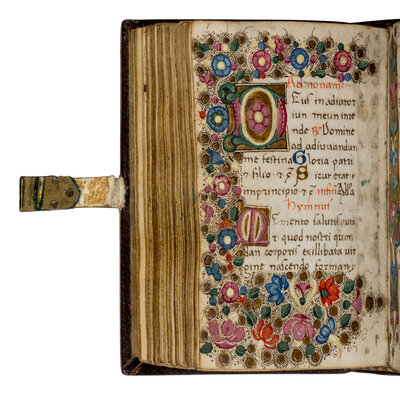 Ad nonam.
Deus in adiutor
ium meum inte
nde & Domine
ad adiuvandum
me festina Gloria patri
& filio & Sicut erat
in principio & Alla
Hymnus
Memento salutis
quod nostri quon
dam corporis ex illibata vir
gine nascendo formam